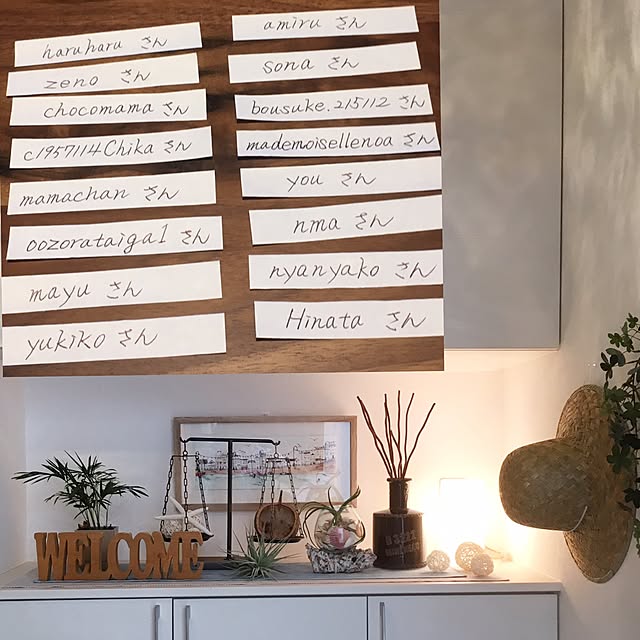 haruharu さん
zeno さん
chocomama さん
c1957114Chika さん
mamachan さん
oozorataiga1 さん
mayu さん
yukiko さん
amiru さん
sona さん
bousuke.215112 さん
mademoisellenoa さん
you さん
nma さん
nyanyako さん
Hinata さん
WELCOME